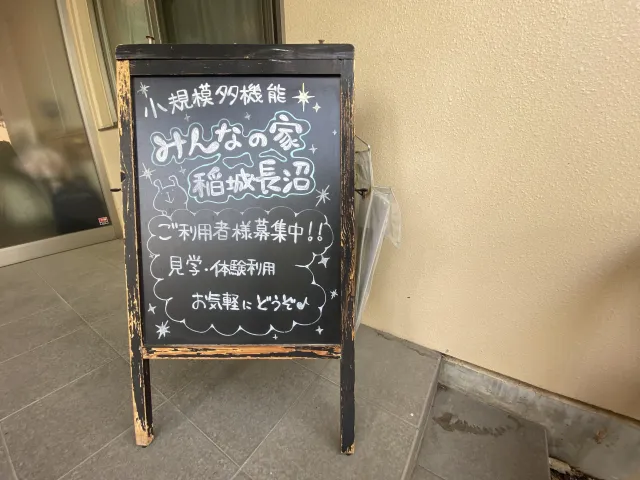 小規模多機能
みんなの家
稲城長沼
ご利用者様募集中!!
見学・体験利用
お気軽にどうぞ♪